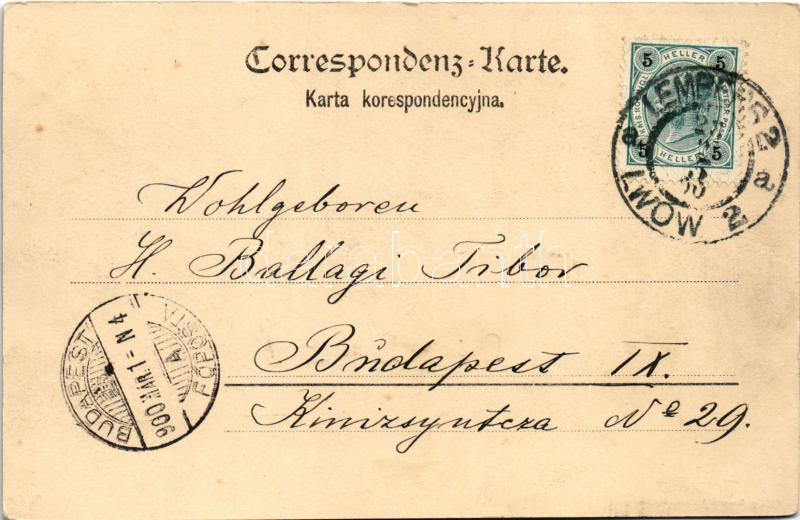 Correspondenz-Karte.
Karta korespondencyjna.
5 HELLER 5
5 HELLER 5
LEMBERG 2
a a
LWÓW 2
Wohlgeboren
H. Ballagi Tibor
Budapest IX.
Kinizsyutcza № 29.
BUDAPEST
900 MAR. 1 = N 4
FŐPOSTA
4
darabanth